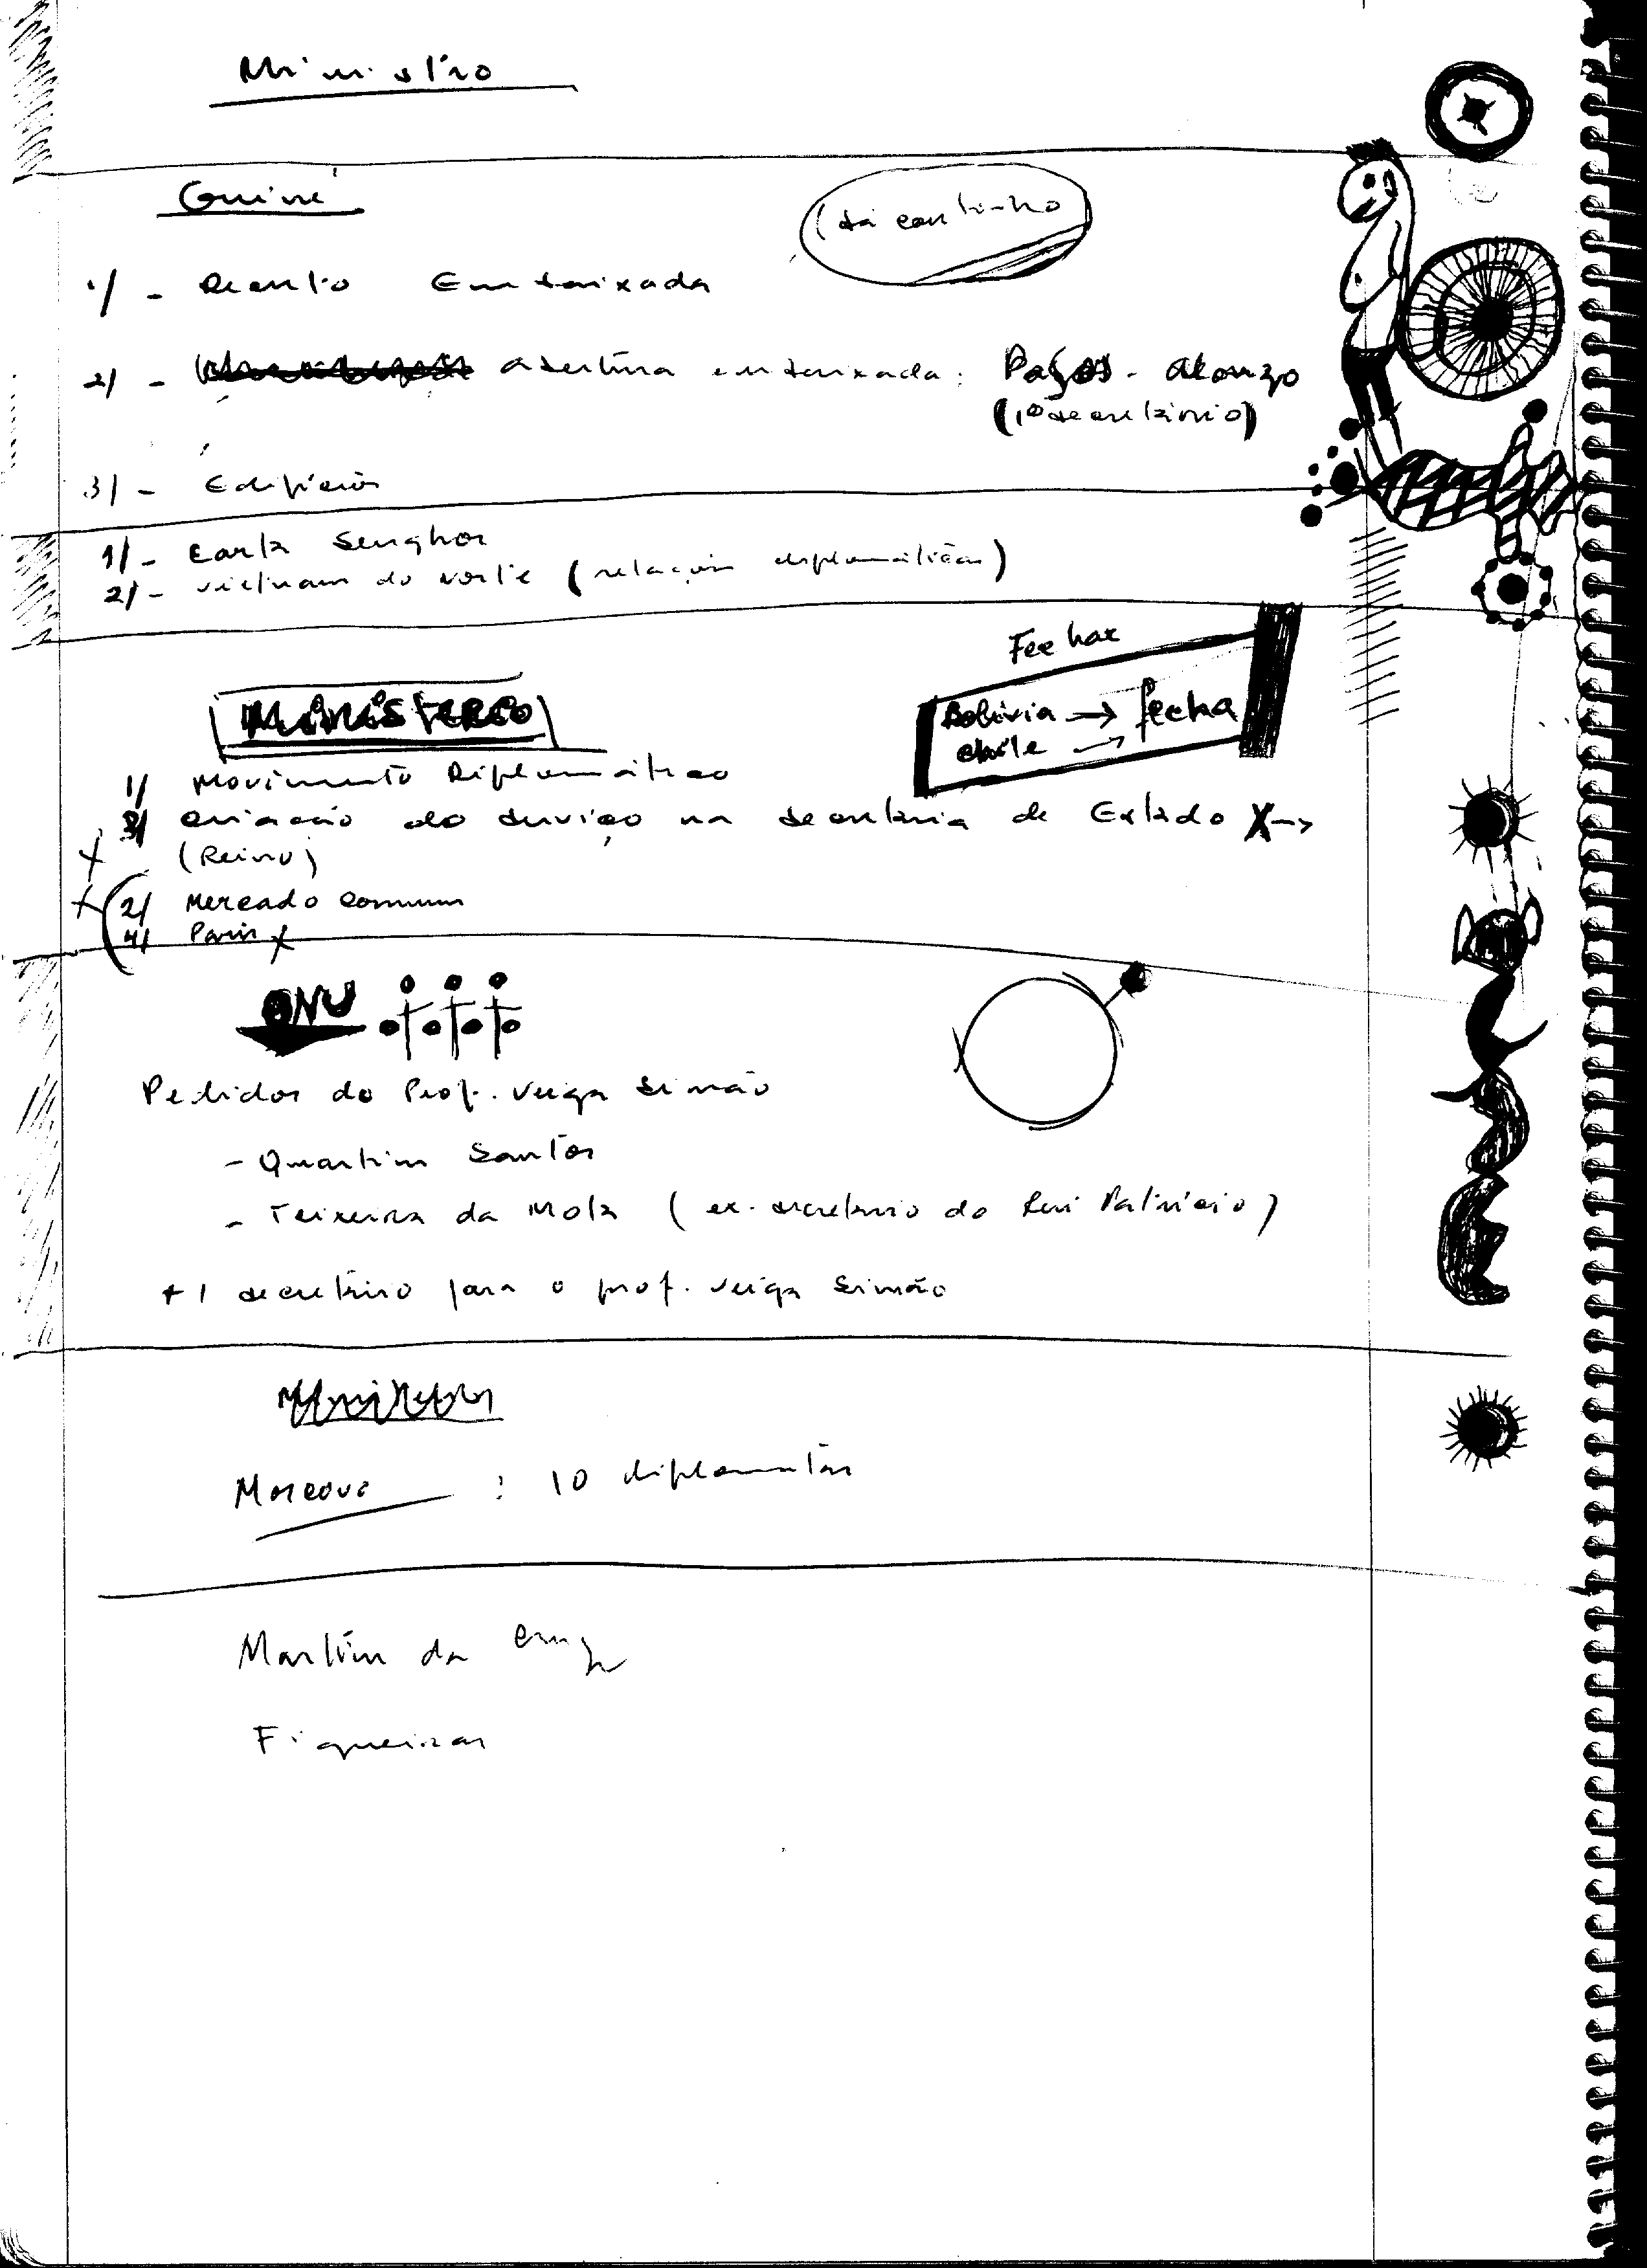 Ministro
Guiné
(Sá Coutinho
1/ - Decreto Embaixada
2/ - abertura embaixada: Paços - Alonzo
(1º secretário)
3/ - Edifícios
1/- Carta Senghor
2/- Vietnam do Norte (relações diplomáticas)
Fechar
MINISTERIO
Bolivia → fecha
Chile →
1/ Movimento Diplomático
3/ criação do serviço na Secretaria de Estado X→
X (Reino)
X (2/ Mercado Comum
4/ Paris X
ONU
Pedidos do Prof. Veiga Simão
- Quartin Santos
- Teixeira da Mota (ex-secretario do Rui Patricio)
+ 1 secretário para o prof. Veiga Simão
Moscovo : 10 diplomatas
Martins da Cruz
Figueiras